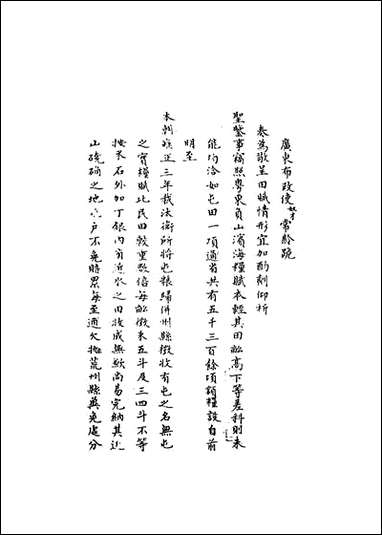 廣東布政使奴才常齡跪
奏為敬呈田賦情形宜加酌劑仰祈
聖鑒事竊照粵東負山濱海糧賦本輕其田畝高下等差科則未
能均洽如屯田一項通省共有五千三百餘項額糧設自前
明至
本朝雍正三年裁汰衛所將屯糧歸併州縣徵收有屯之名無屯
之實糧賦比民田較重數倍每畝徵米五斗及三四斗不等
按米石外加丁銀內有近水之田收成無歉尚易完納其近
山磽确之地屯戶不免賠累每至逋欠拋荒州縣莫免處分